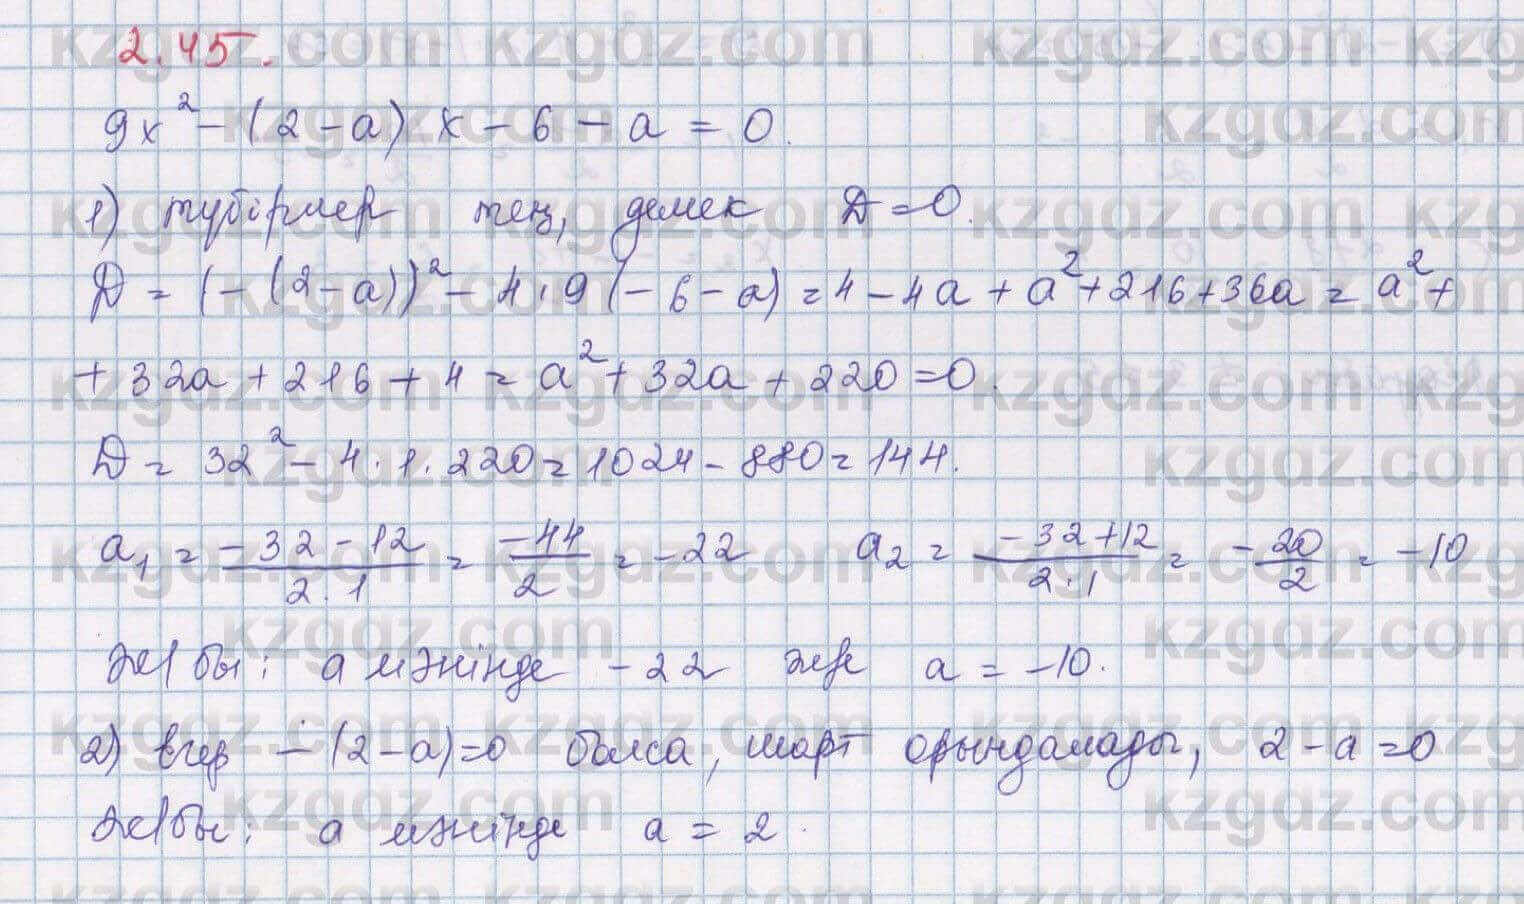 2.45.
9x² – (2 – a) x – 6 – a = 0.
1) түбірлер тең, демек D = 0.
D = (– (2 – a))² – 4 · 9 (– 6 – a) = 4 – 4a + a² + 216 + 36a = a² +
+ 32a + 216 + 4 = a² + 32a + 220 = 0.
D = 32² – 4 · 1 · 220 = 1024 – 880 = 144.
a₁ = (–32 – 12)/(2 · 1) = –44/2 = –22 a₂ = (–32 + 12)/(2 · 1) = –20/2 = –10
Ж/бы: a мәнінде – 22 және a = –10.
2) егер – (2 – a) = 0 болса, шарт орындалады, 2 – a = 0
Ж/бы: a мәнінде a = 2.
kzgdz.com